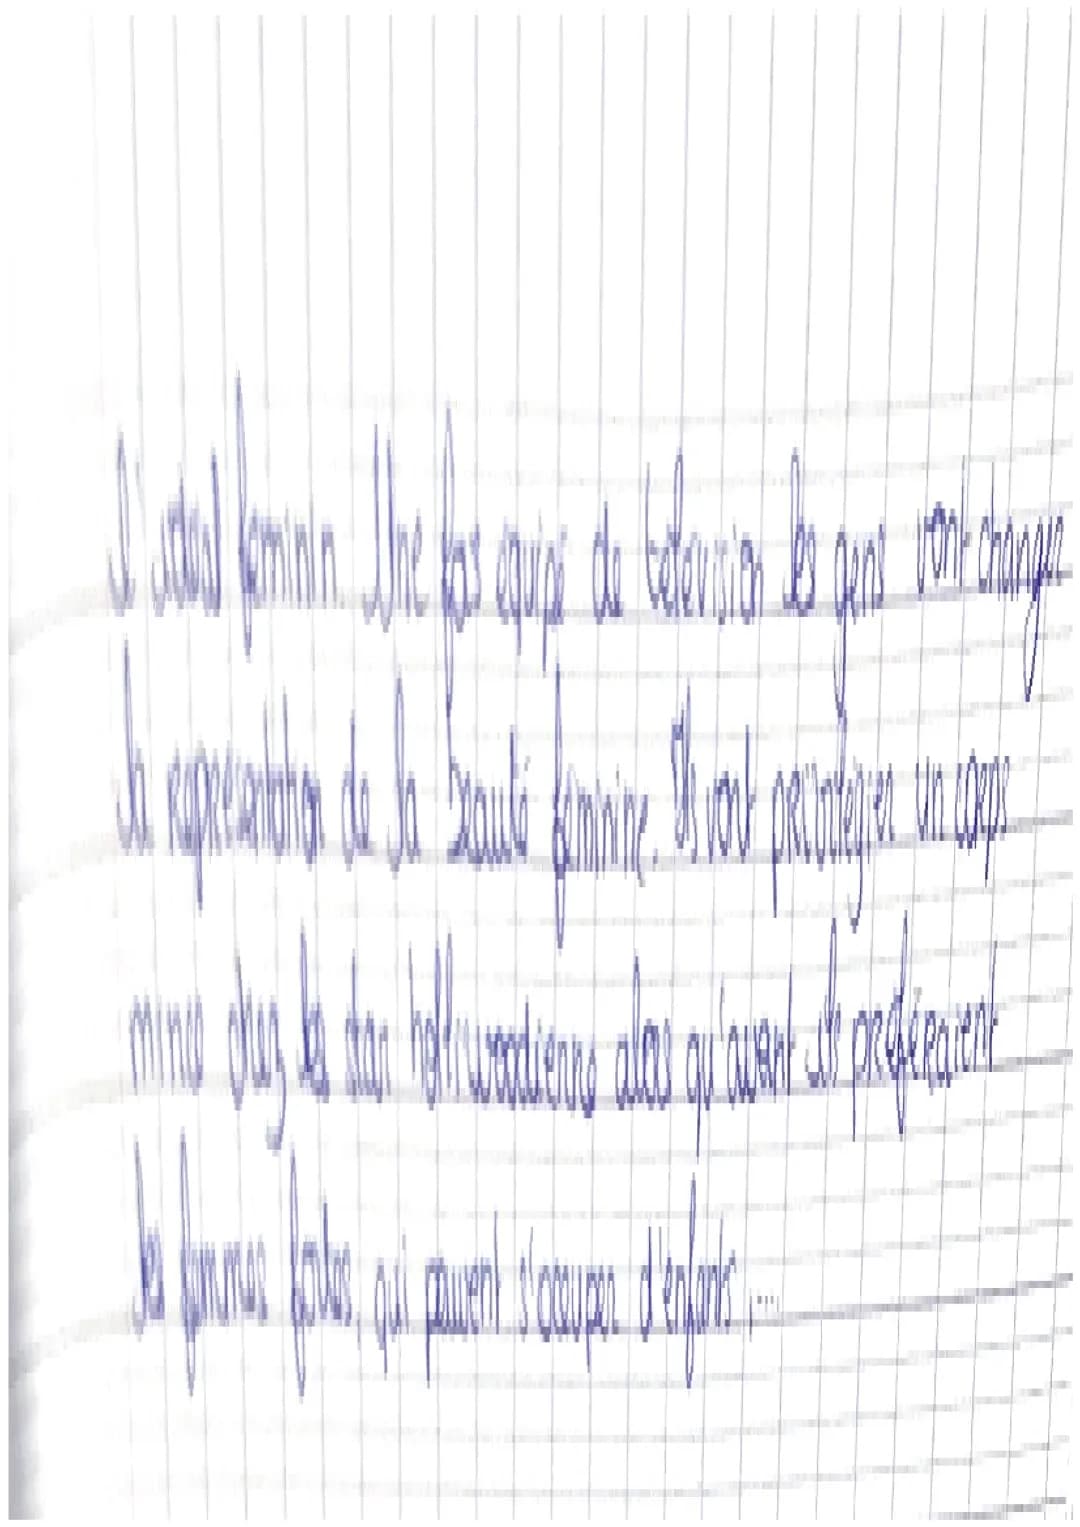 L'idéal féminin. Une fois équipé de télévision les gens ont changé
la représentation de la beauté féminine. Ils vont privilégier un corps
mince chez les alors qu'avant ils préféraient
les femmes fortes, qui peuvent s'occuper d'enfants ....